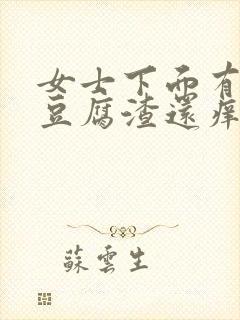 女士下面有
豆腐渣還痒
蘇雲生